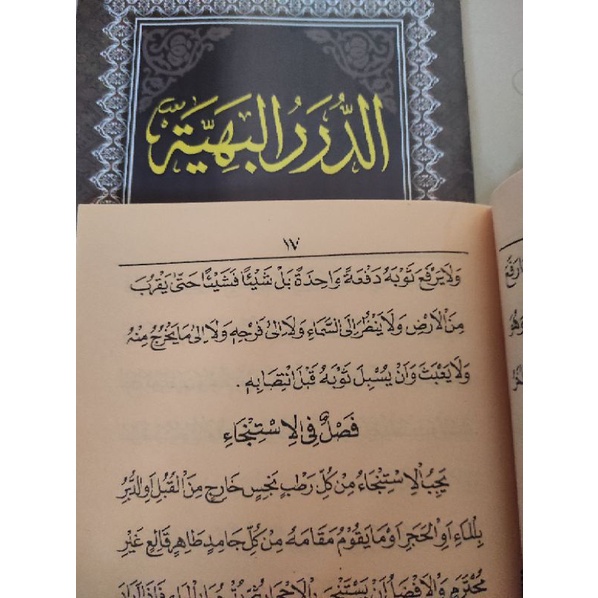 الدُّرَرُ البَهِيَّة
١٧
وَلَا يَرْفَعَ ثَوْبَهُ دَفْعَةً وَاحِدَةً بَلْ شَيْئًا فَشَيْئًا حَتَّى يَقْرُبَ
مِنَ الْأَرْضِ وَلَا يَنْظُرَ إِلَى السَّمَاءِ وَلَا إِلَى فَرْجِهِ وَلَا إِلَى مَا يَخْرُجُ مِنْهُ
وَلَا يَعْبَثَ وَأَنْ يُسْبِلَ ثَوْبَهُ قَبْلَ انْتِصَابِهِ .
فَصْلٌ فِى الْاِسْتِنْجَاءِ
يَجِبُ الْاِسْتِنْجَاءُ مِنْ كُلِّ رَطْبٍ نَجِسٍ خَارِجٍ مِنَ الْقُبُلِ أَوِ الدُّبُرِ
بِالْمَاءِ أَوِ الْحَجَرِ أَوْ مَا يَقُومُ مَقَامَهُ مِنْ كُلِّ جَامِدٍ طَاهِرٍ قَالِعٍ غَيْرِ
مُحْتَرَمٍ وَالْأَفْضَلُ أَنْ يَسْتَنْجِىَ بِالْأَحْجَارِ ثُمَّ